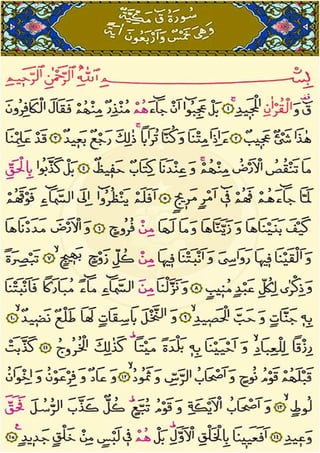 سُورَةُ قٓ مَكِّيَّةٌ
وَهِيَ خَمْسٌ وَاَرْبَعُونَ اٰيَةً
بِسْمِ اللّٰهِ الرَّحْمٰنِ الرَّحِيمِ
قٓ وَالْقُرْاٰنِ الْمَجِيدِۚ ﴿١﴾ بَلْ عَجِبُٓوا اَنْ جَٓاءَهُمْ مُنْذِرٌ مِنْهُمْ فَقَالَ الْكَافِرُونَ
هٰذَا شَيْءٌ عَجِيبٌۚ ﴿٢﴾ ءَاِذَا مِتْنَا وَكُنَّا تُرَابًاۚ ذٰلِكَ رَجْعٌ بَعِيدٌ ﴿٣﴾ قَدْ عَلِمْنَا
مَا تَنْقُصُ الْاَرْضُ مِنْهُمْۚ وَعِنْدَنَا كِتَابٌ حَفِيظٌ ﴿٤﴾ بَلْ كَذَّبُوا بِالْحَقِّ
لَمَّا جَٓاءَهُمْ فَهُمْ فِٓي اَمْرٍ مَرِيجٍ ﴿٥﴾ اَفَلَمْ يَنْظُرُٓوا اِلَى السَّمَٓاءِ فَوْقَهُمْ
كَيْفَ بَنَيْنَاهَا وَزَيَّنَّاهَا وَمَا لَهَا مِنْ فُرُوجٍ ﴿٦﴾ وَالْاَرْضَ مَدَدْنَاهَا
وَاَلْقَيْنَا فِيهَا رَوَاسِيَ وَاَنْبَتْنَا فِيهَا مِنْ كُلِّ زَوْجٍ بَهِيجٍۙ ﴿٧﴾ تَبْصِرَةً
وَذِكْرٰى لِكُلِّ عَبْدٍ مُنِيبٍ ﴿٨﴾ وَنَزَّلْنَا مِنَ السَّمَٓاءِ مَٓاءً مُبَارَكًا فَاَنْبَتْنَا
بِهٖ جَنَّاتٍ وَحَبَّ الْحَصِيدِۙ ﴿٩﴾ وَالنَّخْلَ بَاسِقَاتٍ لَهَا طَلْعٌ نَضِيدٌۙ ﴿١٠﴾
رِزْقًا لِلْعِبَادِۙ وَاَحْيَيْنَا بِهٖ بَلْدَةً مَيْتًاۜ كَذٰلِكَ الْخُرُوجُ ﴿١١﴾ كَذَّبَتْ
قَبْلَهُمْ قَوْمُ نُوحٍ وَاَصْحَابُ الرَّسِّ وَثَمُودُۙ ﴿١٢﴾ وَعَادٌ وَفِرْعَوْنُ وَاِخْوَانُ
لُوطٍۙ ﴿١٣﴾ وَاَصْحَابُ الْاَيْكَةِ وَقَوْمُ تُبَّعٍۜ كُلٌّ كَذَّبَ الرُّسُلَ فَحَقَّ
وَعِيدِ ﴿١٤﴾ اَفَعَيِينَا بِالْخَلْقِ الْاَوَّلِۜ بَلْ هُمْ فِي لَبْسٍ مِنْ خَلْقٍ جَدِيدٍ۟ ﴿١٥﴾